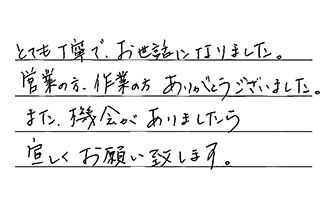 とても丁寧で、お世話になりました。
営業の方、作業の方 ありがとうございました。
また、機会がありましたら
宜しくお願い致します。